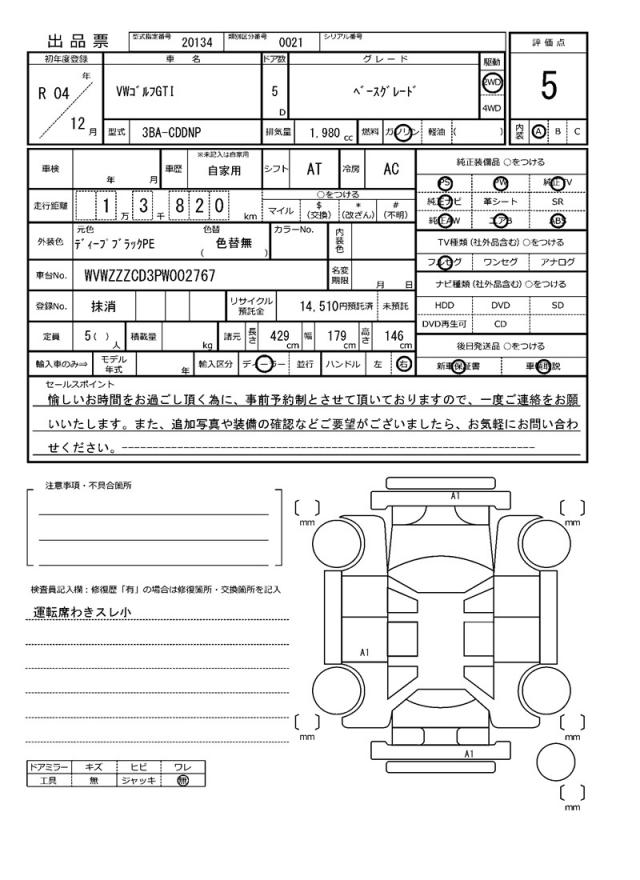 出品票 型式指定番号 20134 類別区分番号 0021 シリアル番号
評価点
初年度登録 車名 ドア数 グレード 駆動
R 04 年 VWゴルフGTI 5 D ベースグレード 2WD 5
4WD
12 月 型式 3BA-CDDNP 排気量 1.980 cc 燃料 ガソリン 軽油 ( ) 内装 A B C
車検 年 月 車歴 ※未記入は自家用 自家用 シフト AT 冷房 AC 純正装備品 ○をつける
PS PW 純正TV
走行距離 1 万 3 千 8 2 0 km ○をつける マイル $ (交換) * (改ざん) # (不明) 純正ナビ 革シート SR
純正AW エアB ABS
外装色 元色 ディープブラックPE 色替 色替無 ( ) カラーNo. 内装色 TV種類 (社外品含む) ○をつける
フルセグ ワンセグ アナログ
車台No. WVWZZZCD3PW002767 名変期限 月 日 ナビ種類 (社外品含む) ○をつける
登録No. 抹消 リサイクル預託金 14,510円預託済 未預託 HDD DVD SD
DVD再生可 CD
定員 5( ) 人 積載量 kg 諸元 長さ 429 cm 幅 179 cm 高さ 146 cm 後日発送品 ○をつける
輸入車のみ⇒ モデル年式 年 輸入区分 ディーラー 並行 ハンドル 左 右 新車保証書 車輌取説
セールスポイント
愉しいお時間をお過ごし頂く為に、事前予約制とさせて頂いておりますので、一度ご連絡をお願
いいたします。また、追加写真や装備の確認などご要望がございましたら、お気軽にお問い合わ
せください。
注意事項・不具合箇所
検査員記入欄:修復歴「有」の場合は修復箇所・交換箇所を記入
運転席わきスレ小
A1
mm
mm
A1
mm
mm
A1
mm
ドアミラー キズ ヒビ ワレ
工具 無 ジャッキ 無